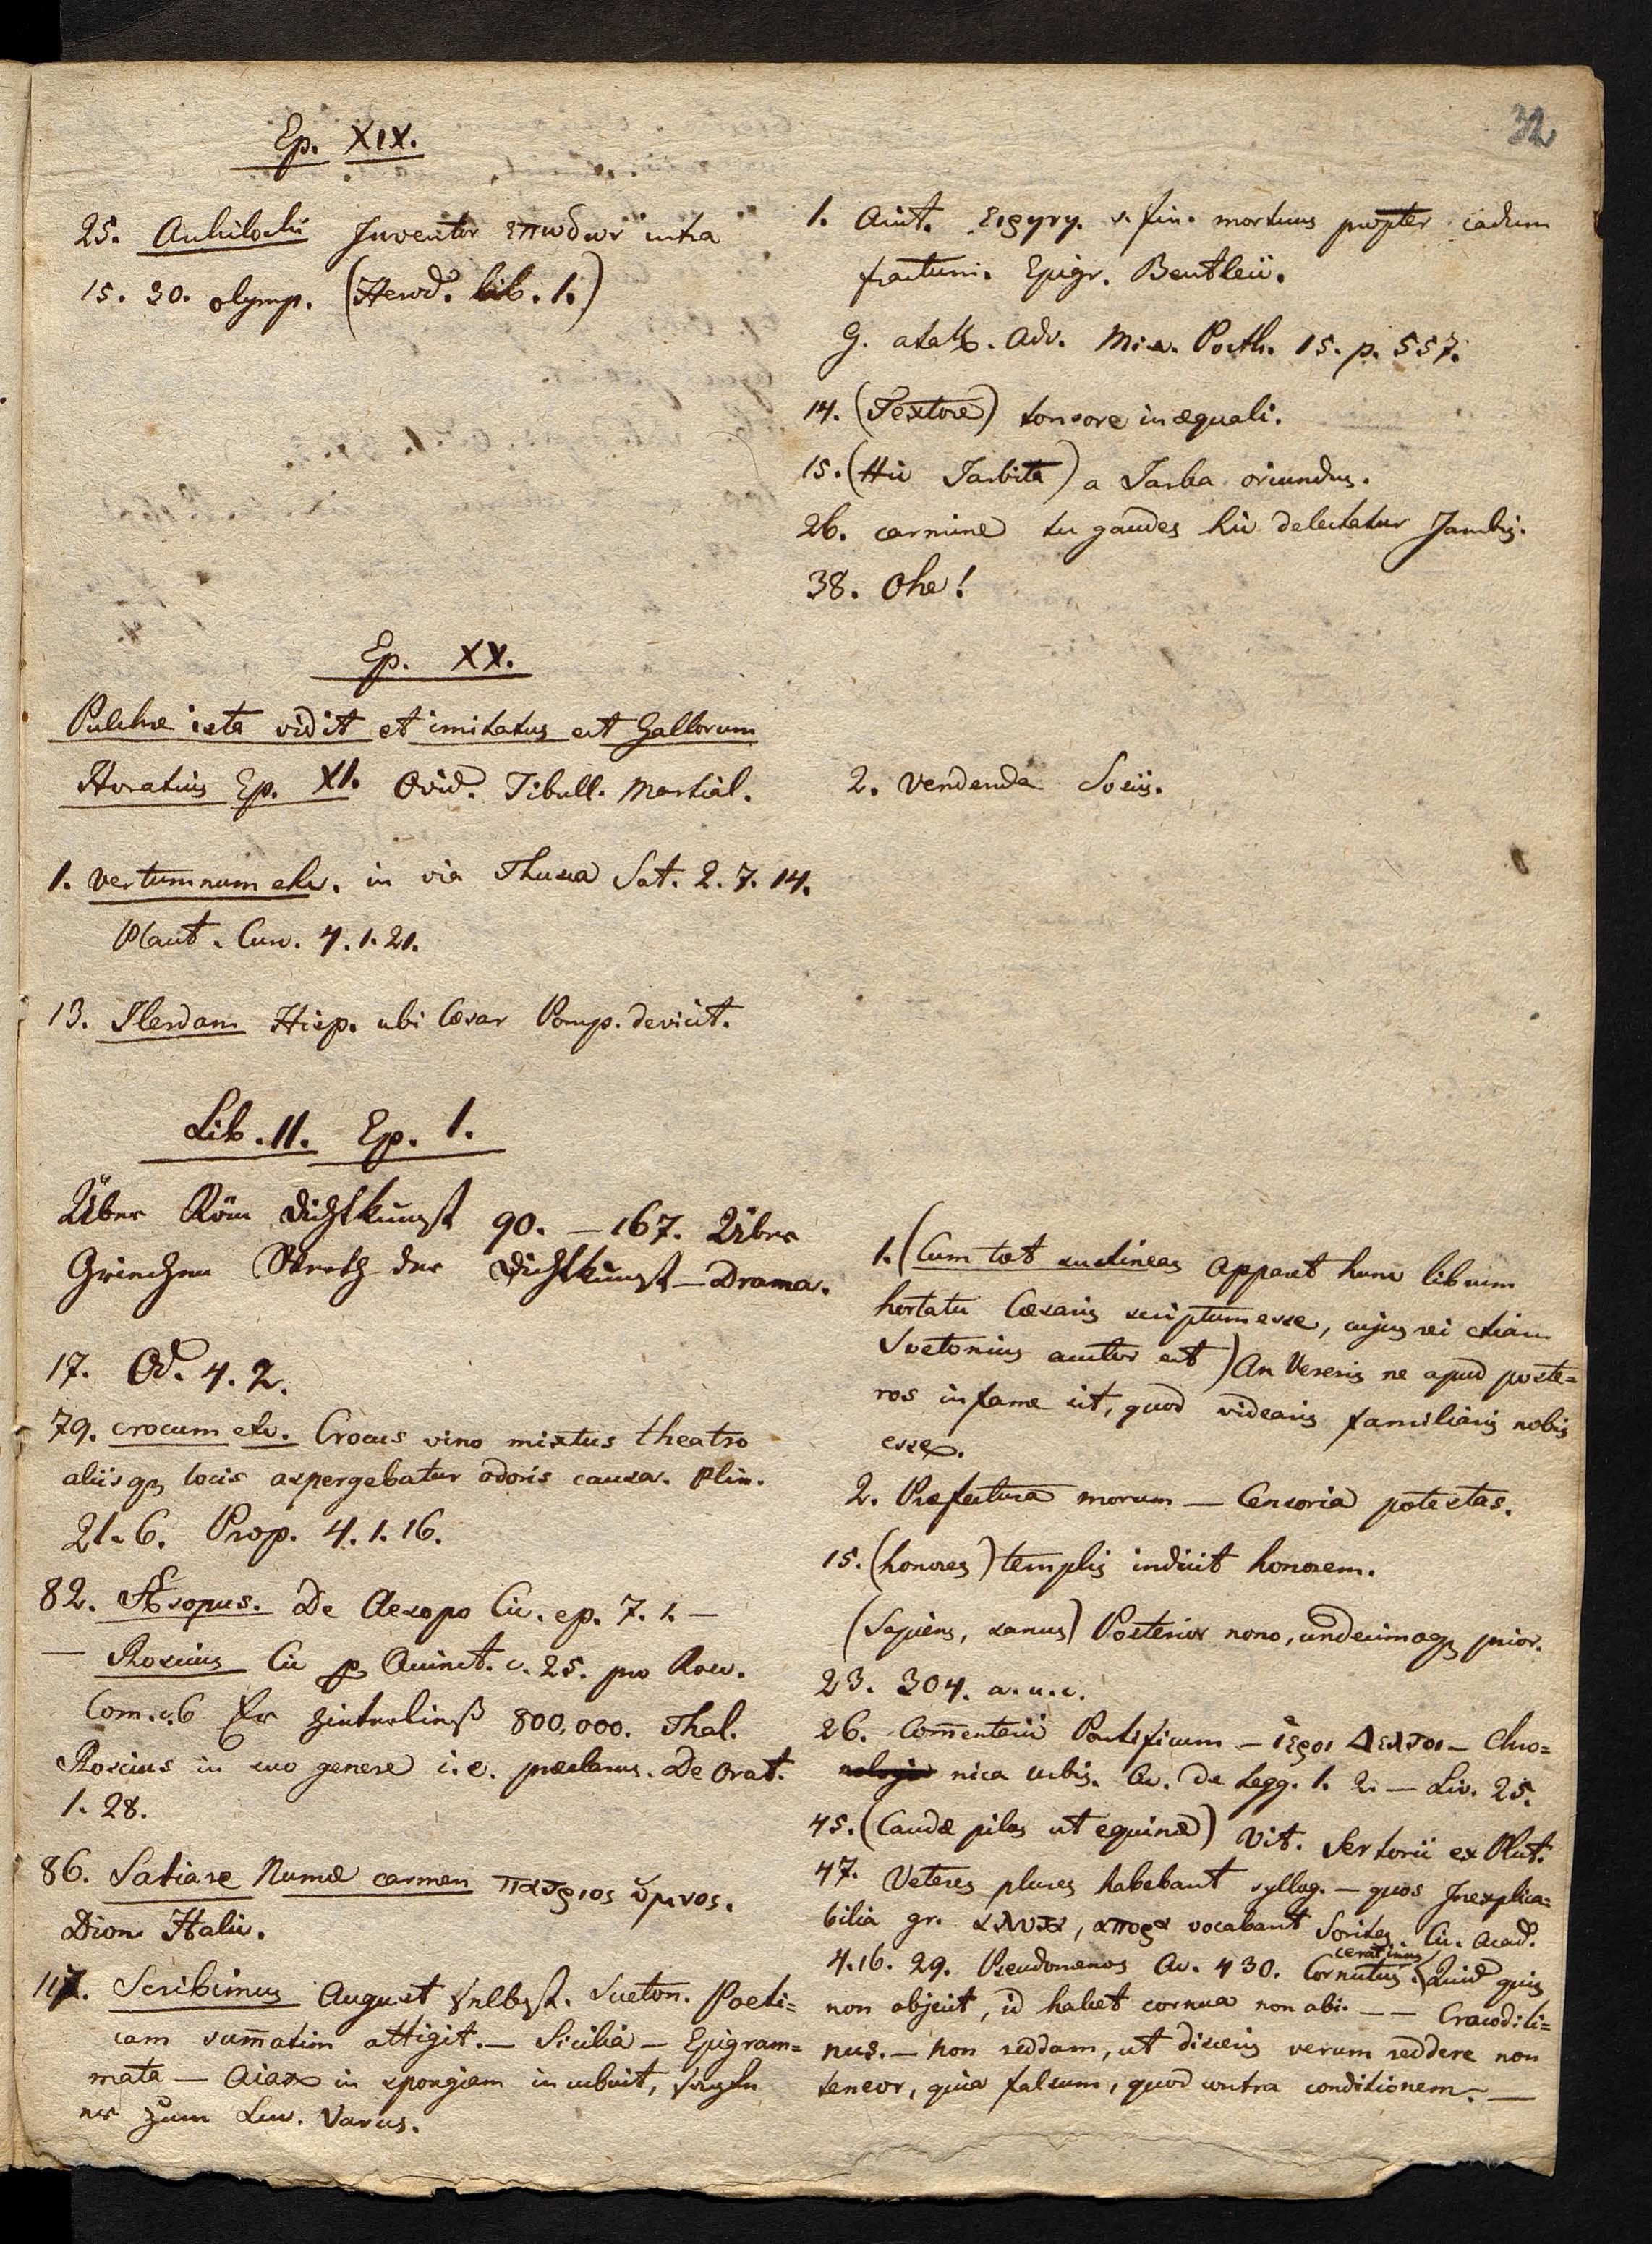 32
Ep. XIX.
25. Archilochi Inventor επωδων intra
15. 30. olymp. (Herod. lib. 1.)
1. Crat. v. fin. mortuus propter cadum
fractum. Epigr. Bentleii.
Adv. Misc. Porth. 15. p. 557.
14. (Textore) tonsore inæquali.
15. (Hic Jarbita) a Jarba oriundus.
26. carmine tu gaudes hic delectatur Jambis.
38. Ohe!
Ep. XX.
Pulchre ista vidit et imitatus est Gallorum
Horatius Ep. XI. Ovid. Tibull. Martial.
2. vendenda Sosiis.
1. Vertumnum etc. in via Thusca Sat. 2. 7. 14.
Plaut. Curc. 4. 1. 21.
13. Ilerdam Hisp. ubi Cæsar Pomp. devicit.
Lib. II. Ep. 1.
Über Röm Dichtkunst 90. – 167. Über
Griechen Dichtkunst – Drama.
17. Od. 4. 2.
79. crocum etc. Crocus vino mixtus theatro
aliisq; locis aspergebatur odoris causa. Plin.
21. 6. Prop. 4. 1. 16.
82. Æsopus. De Aesopo Cic. ep. 7. 1. –
– Roscius Cic p Quinct. c. 25. pro Rosc.
Com. c. 6 Er hinterließ 800,000. Thal.
Roscius in suo genere i. e. præclarus. De Orat.
1. 28.
86. Saliare Numæ carmen πατριος ὑμνος.
Dion Halic.
117. Scribimus August selbst. Sueton. Poeti=
cam sum̄atim attigit. – Sicilia – Epigram=
mata – Aiax in spongiam incubuit, sagte
er zum Luc. Varus.
1. (Cum tot sustineas apparet hunc librum
hortatu Cæsaris scriptum esse, cujus rei etiam
Suetonius auctor est) An Vereris ne apud poste=
ros infame sit, quod videaris familiaris nobis
esse.
2. Præfectura morum – Censoria potestas.
15. (honores) templis indicit honorem.
(Sapiens, sanus) Posterior nono, undecimoq; prior.
23. 304. a. u. c.
26. Com̄entarii Pontificum – ἱεροι Δελτοι – Chro=
nica urbis. Cic. De Legg. 1. 2. – Liv. 25.
45. (Caudæ pilos ut equinæ) Vit. Sertorii ex Plut.
47. Veteres plures habebant syllog. – quos Inexplica=
bilia gr. αλυτα, απορα vocabant Sorites. Cic. Acad.
4. 16. 29. Pseudomenos Cic. 430. Cornutus. ceratinus Quid quis
non abjecit, id habet cornua non abi. – – Crocodili=
nus. – non reddam, ut dixeris verum reddere non
teneor, quia falsum, quod contra conditionem. –